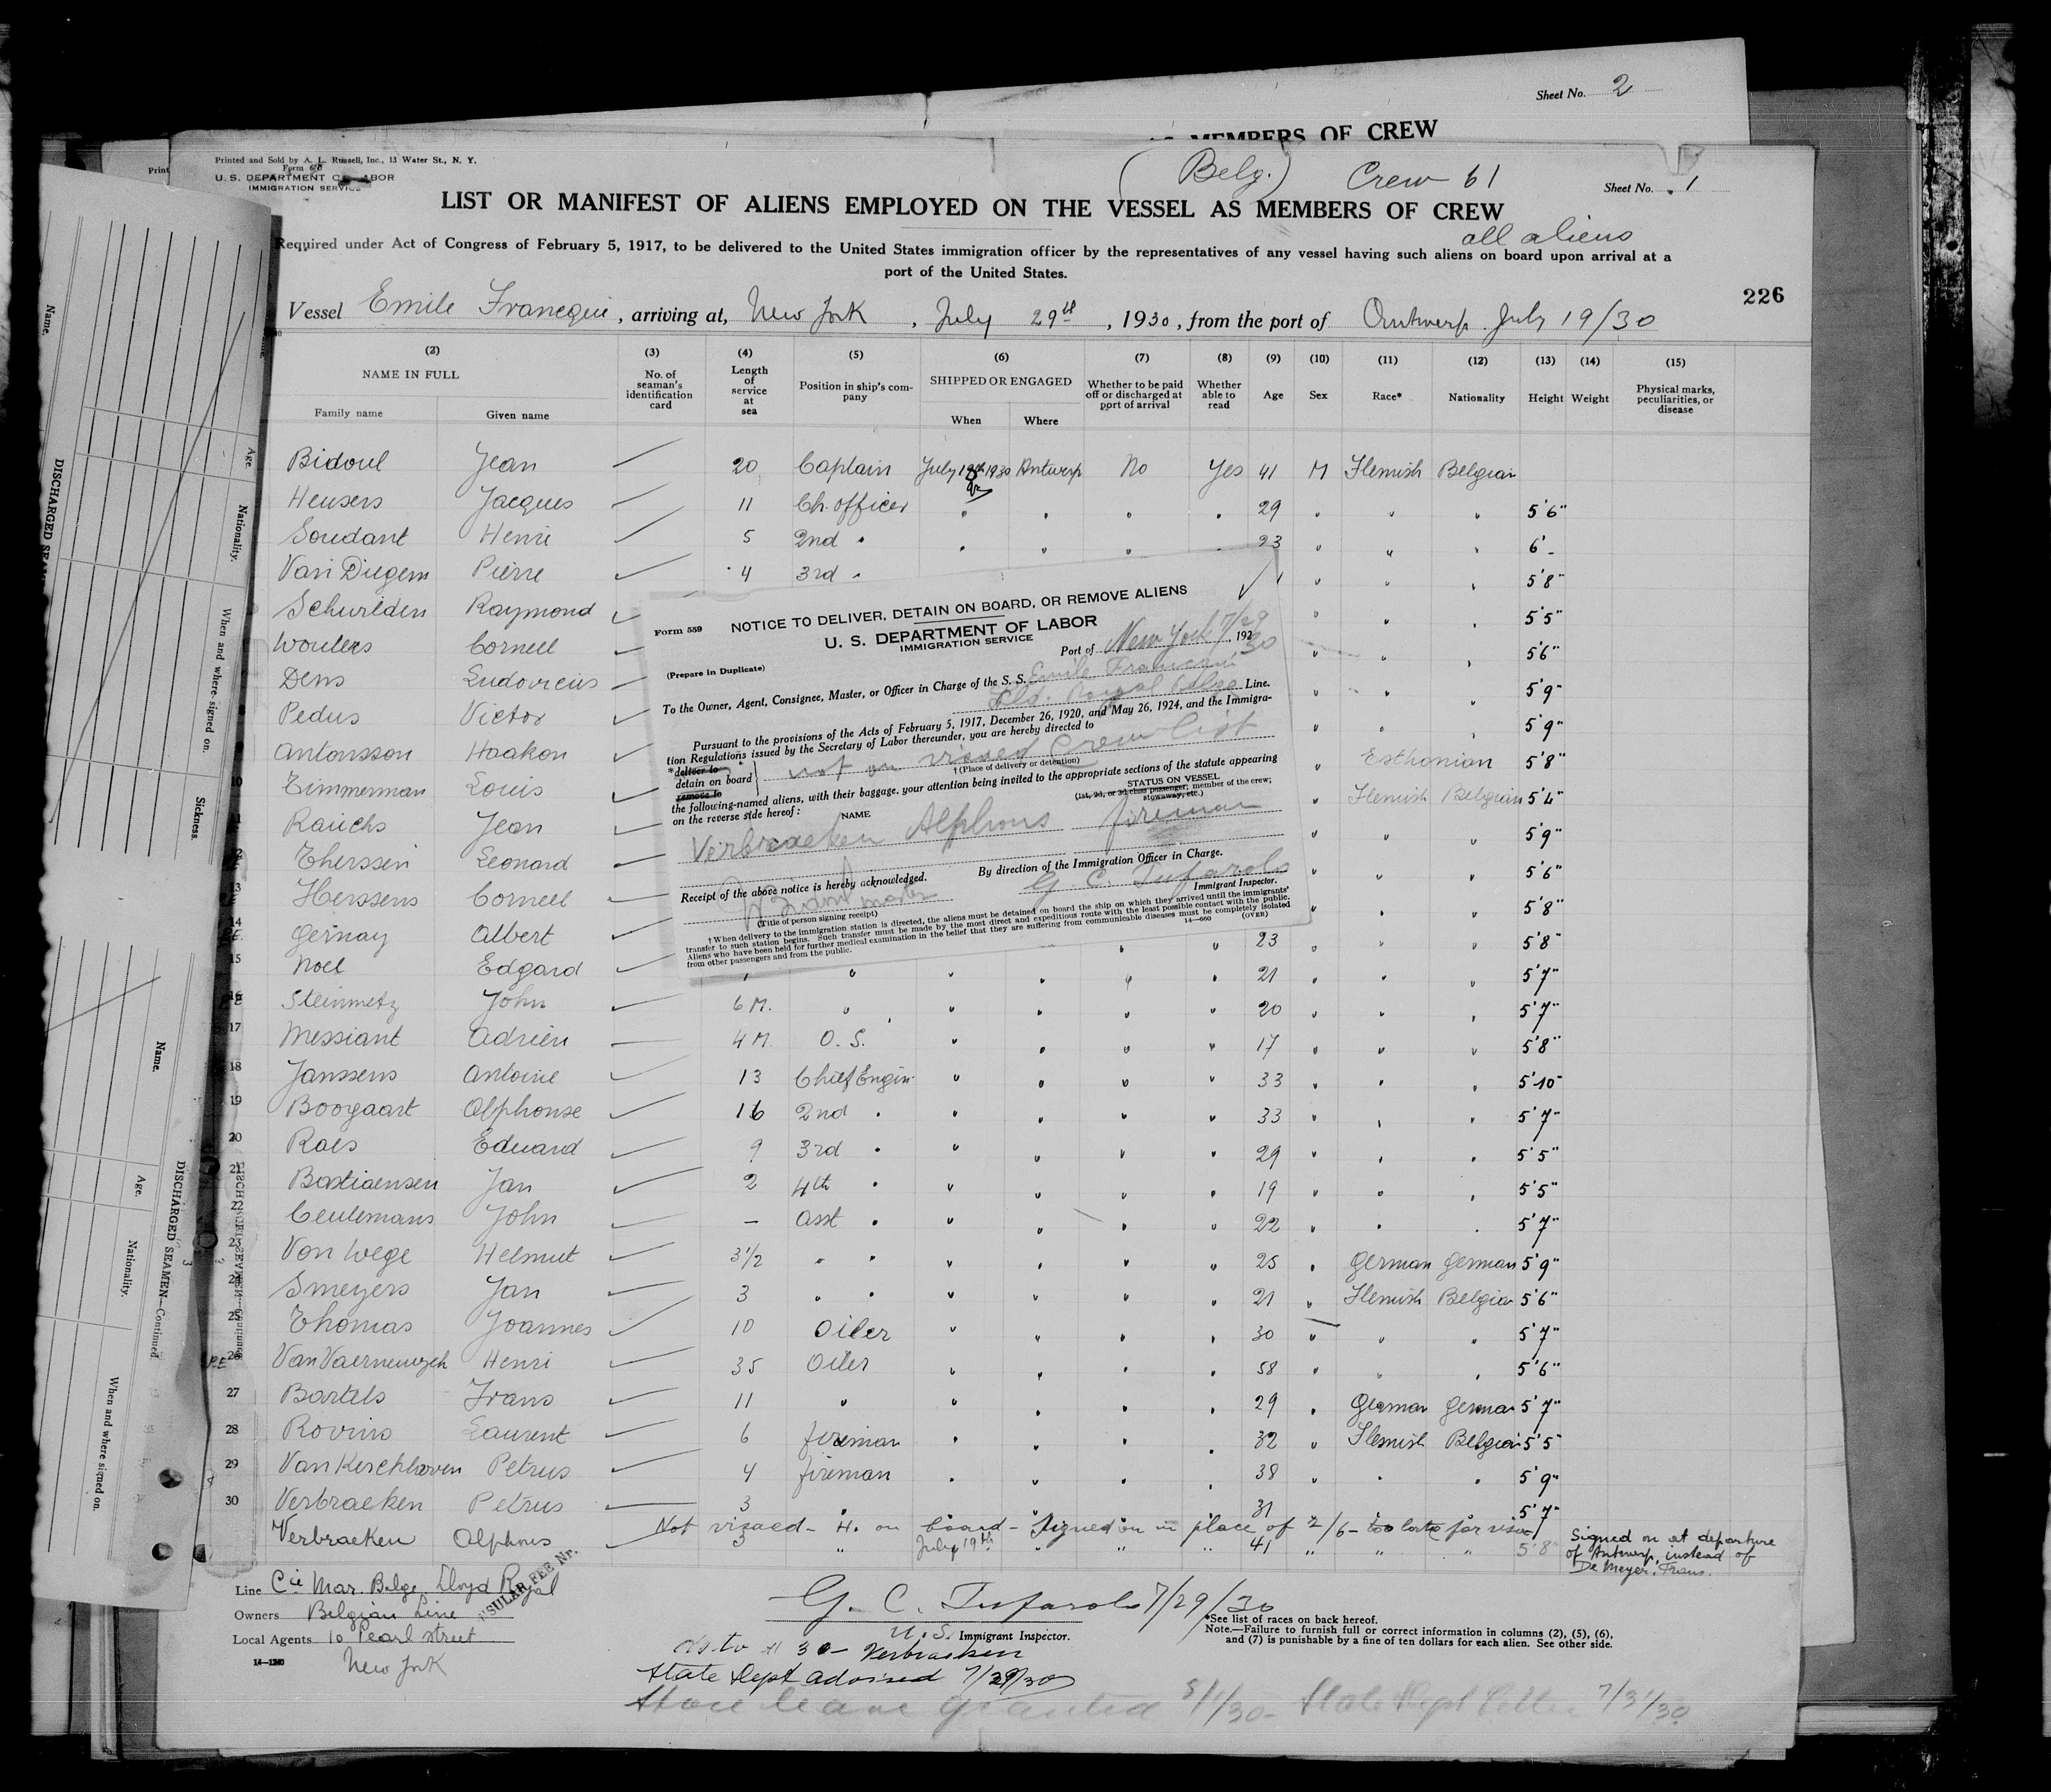 Sheet No. 2
MEMBERS OF CREW
Printed and Sold by A. L. Russell, Inc., 13 Water St., N. Y.
Form 680
U. S. DEPARTMENT OF LABOR
IMMIGRATION SERVICE
(Belg.) Crew 61
Sheet No. 1
LIST OR MANIFEST OF ALIENS EMPLOYED ON THE VESSEL AS MEMBERS OF CREW
all aliens
Required under Act of Congress of February 5, 1917, to be delivered to the United States immigration officer by the representatives of any vessel having such aliens on board upon arrival at a
port of the United States.
226
Vessel Emile Francqui, arriving at, New York, July 29th, 1930, from the port of Antwerp July 19/30
(2) (3) (4) (5) (6) (7) (8) (9) (10) (11) (12) (13) (14) (15)
NAME IN FULL
Family name Given name
No. of seaman's identification card
Length of service at sea
Position in ship's company
SHIPPED OR ENGAGED
When Where
Whether to be paid off or discharged at port of arrival
Whether able to read
Age Sex Race* Nationality Height Weight
Physical marks, peculiarities, or disease
Bidoul Jean 20 Captain July 19th 1930 Antwerp No Yes 41 M Flemish Belgian
Heusers Jacques 11 Ch. officer " " " " 29 " " " 5'6"
Soudant Henri 5 2nd " " " " " 23 " " " 6'-
Van Diegem Pierre 4 3rd " " " " 5'8"
Schurlden Raymond " " " 5'5"
Wouters Cornell " " " 5'6"
Dens Ludovicus " " " 5'9"
Pedus Victor " " " 5'9"
Antonsson Haakon " Esthonian 5'8"
10 Timmerman Louis " Flemish Belgian 5'4"
Rauchs Jean " " " 5'9"
Therssen Leonard " " " 5'6"
13 Herssens Cornell " " " 5'8"
14 Gernay Albert " " 23 " " " 5'8"
15 Noel Edgard " " " " " 21 " " " 5'7"
16 Steinmetz John 6 M. " " " " " 20 " " " 5'7"
17 Messiant Adrien 4 M. O. S. " " " " 17 " " " 5'8"
18 Janssens Antoine 13 Chief Engin. " " " " 33 " " " 5'10"
19 Boogaart Alphonse 16 2nd " " " " " 33 " " " 5'7"
20 Raes Eduard 9 3rd " " " " " 29 " " " 5'5"
21 Bastiaensen Jan 2 4th " " " " " 19 " " " 5'5"
22 Ceulemans John - asst " " " " " 22 " " " 5'7"
23 Von Wege Helmut 3 1/2 " " " " " " 25 " German German 5'9"
24 Smeyers Jan 3 " " " " " " 21 " Flemish Belgia 5'6"
25 Thomas Joannes 10 Oiler " " " " 30 " " " 5'7"
26 Van Vaernewyck Henri 35 Oiler " " " " 58 " " " 5'6"
27 Bartels Frans 11 " " " " " 29 " German German 5'7"
28 Rovins Laurent 6 fireman " " " " 32 " Flemish Belgian 5'5"
29 Van Kerchhoven Petrus 4 fireman " " " " 38 " " " 5'9"
30 Verbraeken Petrus 3 " " 31 5'7"
Not visaed - H. on board - Signed on in place of 2/6 - too late for visa
Verbraeken Alphons 3 " July 19th " " " 41 " " " 5'8"
Signed on at departure
of Antwerp, instead of
De Meyer, Frans.
Form 559
NOTICE TO DELIVER, DETAIN ON BOARD, OR REMOVE ALIENS
U. S. DEPARTMENT OF LABOR
IMMIGRATION SERVICE
(Prepare in Duplicate)
Port of New York 7/29, 192 30
To the Owner, Agent, Consignee, Master, or Officer in Charge of the S. S. Emile Francqui
Lld. Royal Belge Line.
Pursuant to the provisions of the Acts of February 5, 1917, December 26, 1920, and May 26, 1924, and the Immigra-
tion Regulations issued by the Secretary of Labor thereunder, you are hereby directed to
*deliver to
detain on board
remove to
not on visaed Crew list
†(Place of delivery or detention)
the following-named aliens, with their baggage, your attention being invited to the appropriate sections of the statute appearing
on the reverse side hereof:
NAME
STATUS ON VESSEL
(1st, 2d, or 3d class passenger; member of the crew; stowaway, etc.)
Verbraeken Alphons fireman
By direction of the Immigration Officer in Charge.
Receipt of the above notice is hereby acknowledged.
G. C. Tufarolo
Immigrant Inspector.
master
(Title of person signing receipt)
†When delivery to the immigration station is directed, the aliens must be detained on board the ship on which they arrived until the immigrants'
transfer to such station begins. Such transfer must be made by the most direct and expeditious route with the least possible contact with the public.
Aliens who have been held for further medical examination in the belief that they are suffering from communicable diseases must be completely isolated
from other passengers and from the public.
14—660 (OVER)
Line Cie Mar. Belge Lloyd Royal
Owners Belgian Line
Local Agents 10 Pearl street
New York
14—1240
SULAR FEE Nr.
G. C. Tufarolo 7/29/30
U. S. Immigrant Inspector.
*See list of races on back hereof.
Note.—Failure to furnish full or correct information in columns (2), (5), (6),
and (7) is punishable by a fine of ten dollars for each alien. See other side.
As to # 30 - Verbraeken
State Dept advised 7/29/30
Shore leave granted 8/1/30 - State Dept letter 7/31/30
Name.
Age.
Nationality.
When and where signed on.
Sickness.
DISCHARGED SEAMEN
Name.
Age.
Nationality.
When and where signed on.
DISCHARGED SEAMEN—Continued